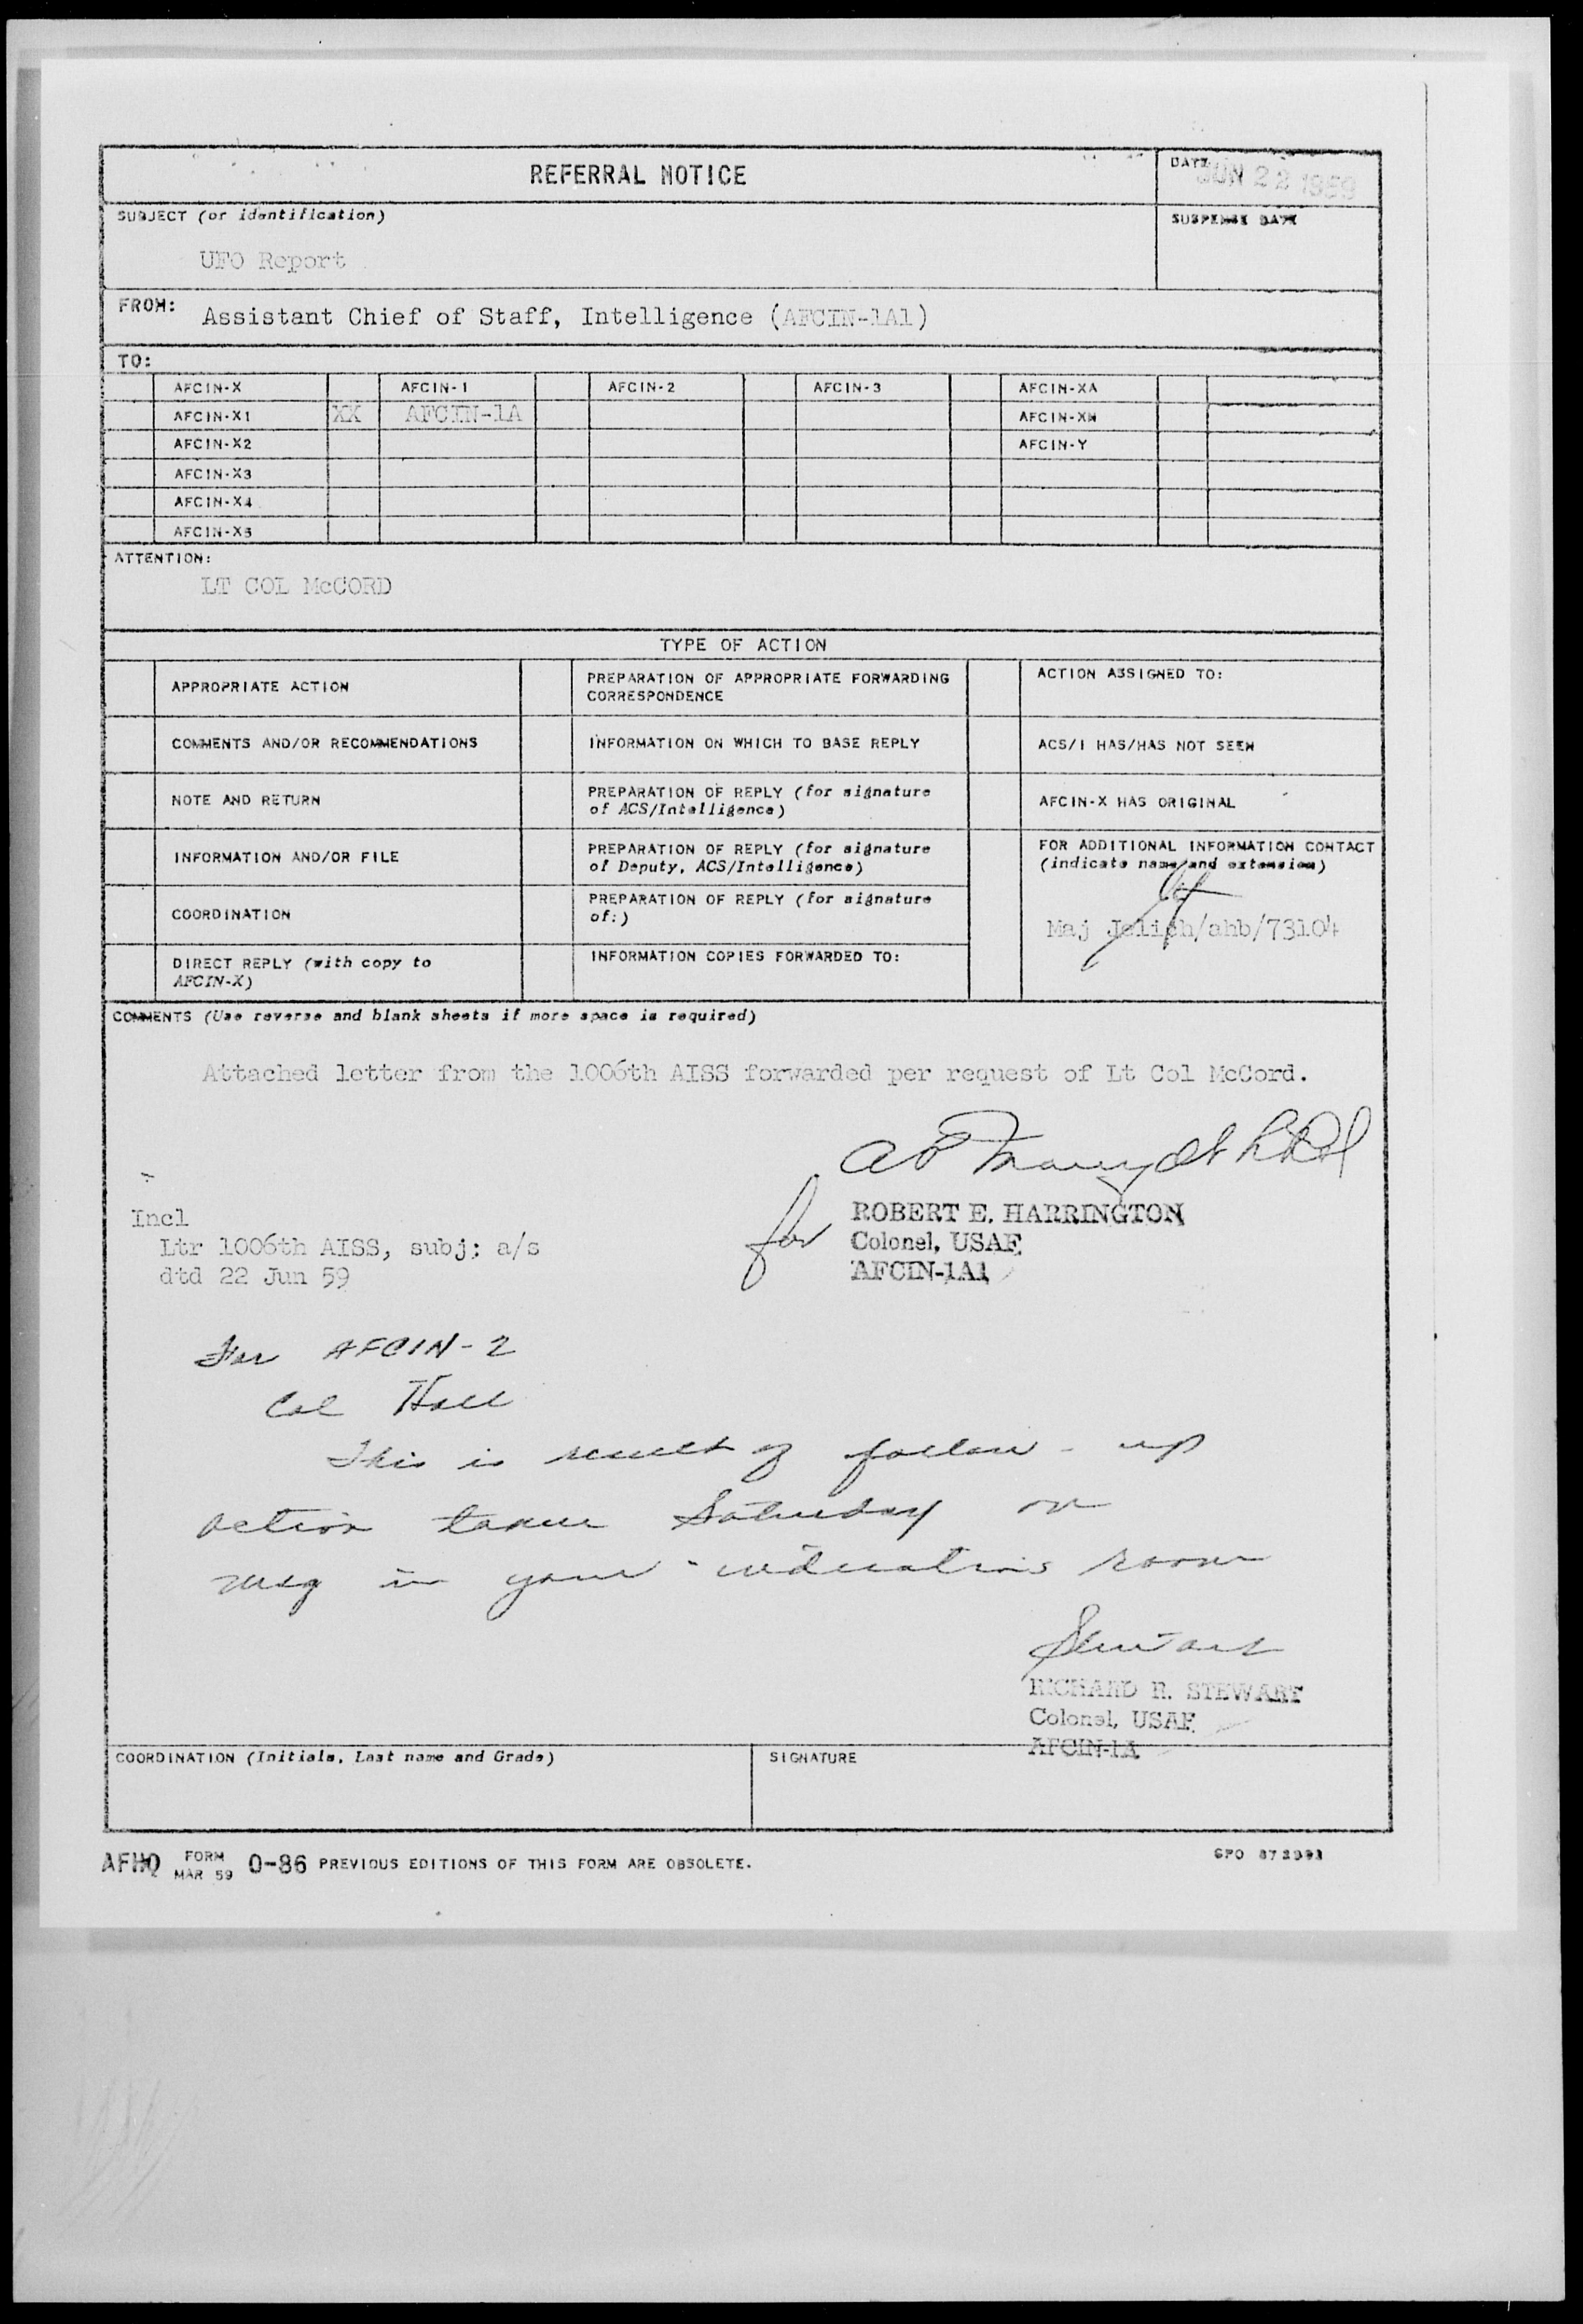 REFERRAL NOTICE
DATE
JUN 22 1959
SUBJECT (or identification)
SUSPENSE DATE
UFO Report
FROM: Assistant Chief of Staff, Intelligence (AFCIN-1A1)
TO:
AFCIN-X AFCIN-1 AFCIN-2 AFCIN-3 AFCIN-XA
AFCIN-X1 XX AFCIN-1A AFCIN-XN
AFCIN-X2 AFCIN-Y
AFCIN-X3
AFCIN-X4
AFCIN-X5
ATTENTION:
LT COL McCORD
TYPE OF ACTION
APPROPRIATE ACTION
PREPARATION OF APPROPRIATE FORWARDING
CORRESPONDENCE
ACTION ASSIGNED TO:
COMMENTS AND/OR RECOMMENDATIONS
INFORMATION ON WHICH TO BASE REPLY
ACS/I HAS/HAS NOT SEEN
NOTE AND RETURN
PREPARATION OF REPLY (for signature
of ACS/Intelligence)
AFCIN-X HAS ORIGINAL
INFORMATION AND/OR FILE
PREPARATION OF REPLY (for signature
of Deputy, ACS/Intelligence)
FOR ADDITIONAL INFORMATION CONTACT
(indicate name and extension)
Maj Jelich/ahb/73104
COORDINATION
PREPARATION OF REPLY (for signature
of:)
DIRECT REPLY (with copy to
AFCIN-X)
INFORMATION COPIES FORWARDED TO:
COMMENTS (Use reverse and blank sheets if more space is required)
Attached letter from the 1006th AISS forwarded per request of Lt Col McCord.
for
ROBERT E. HARRINGTON
Colonel, USAF
AFCIN-1A1
Incl
Ltr 1006th AISS, subj: a/s
dtd 22 Jun 59
For AFCIN-2
Col Hall
This is result of follow-up
action taken Saturday on
msg in your indications room
Stewart
RICHARD R. STEWART
Colonel, USAF
AFCIN-1A
COORDINATION (Initials, Last name and Grade)
SIGNATURE
AFHQ FORM MAR 59 0-86 PREVIOUS EDITIONS OF THIS FORM ARE OBSOLETE.
GPO